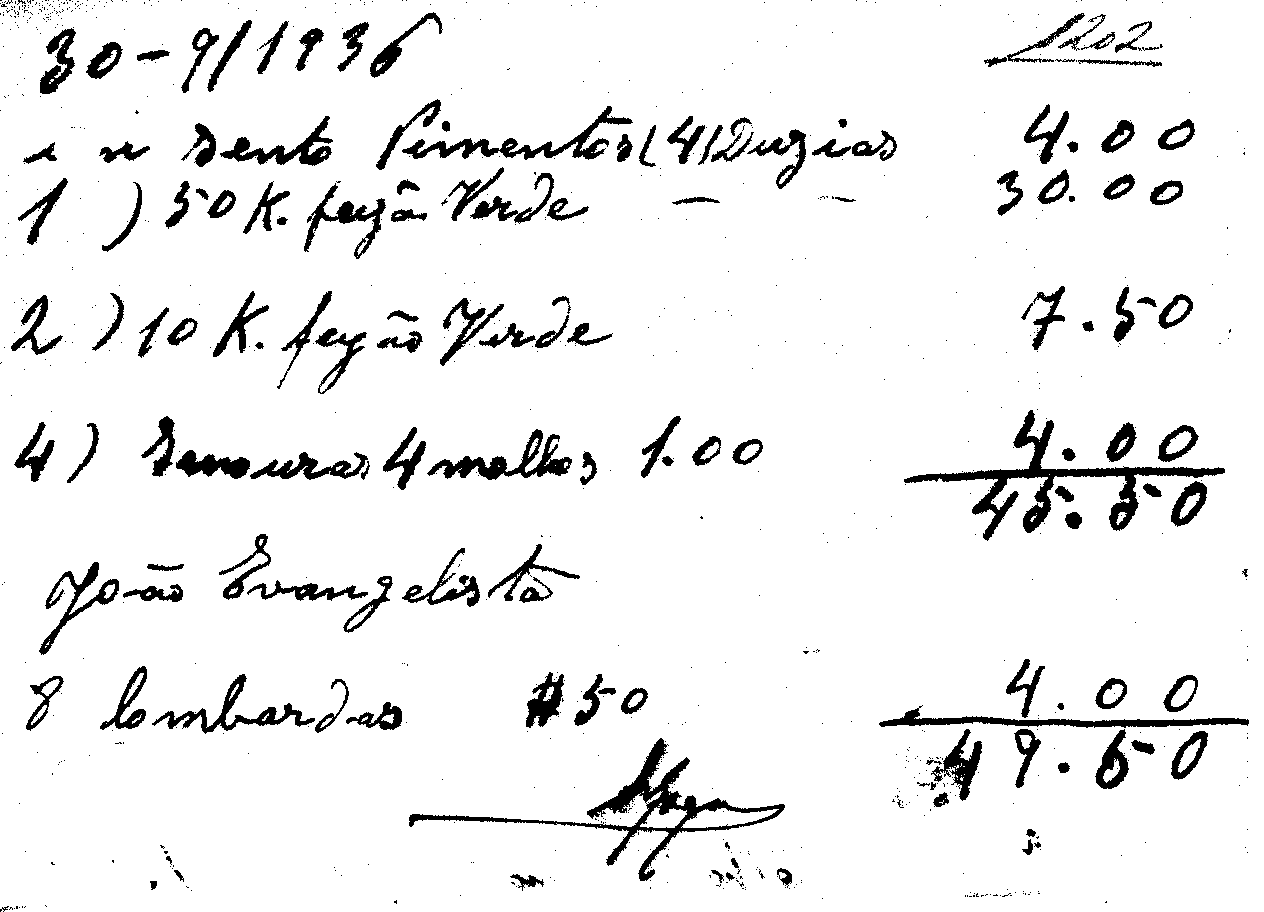 30-9/1936 1202
Pimentos (4) Duzias 4.00
1) 50 K. feijão Verde — — 30.00
2) 10 K. feijão Verde 7.50
4) Senouras 4 molhos 1.00 4.00
45.50
João Evangelista
8 lombardas #50 4.00
49.50